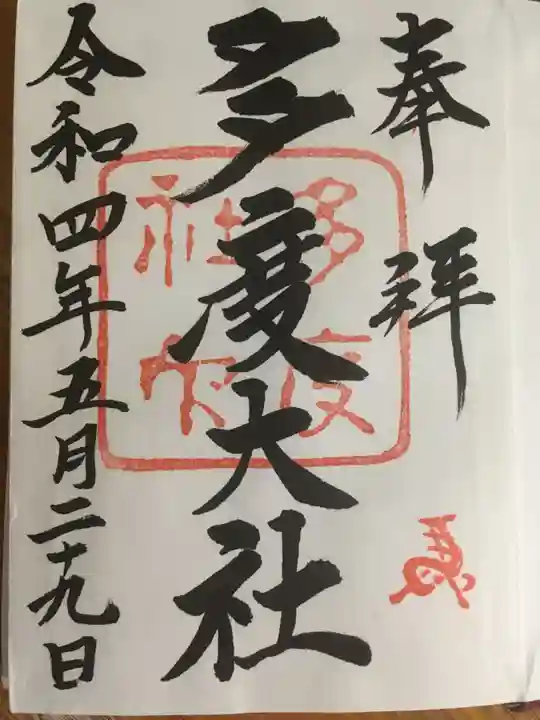 奉拝
多度大社
令和四年五月二十九日
多度
社印